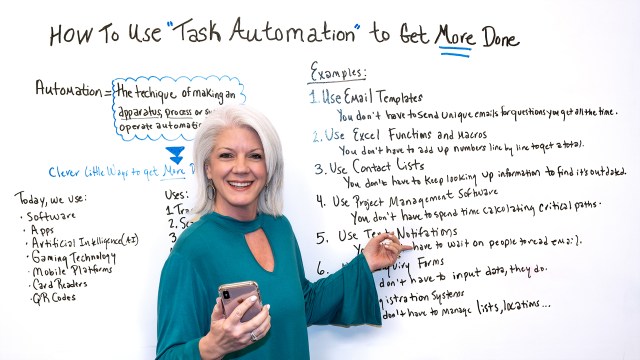 How To Use "Task Automation" to Get More Done
Automation = the techique of making an
apparatus, process or
operate automati
Clever Little Ways to get More D
Today, we use:
• Software
• Apps
• Artificial Intelligence (AI)
• Gaming Technology
• Mobile Platforms
• Card Readers
• QR Codes
Uses:
1. Tra
2. Sc
3.
Examples:
1. Use Email Templates
You don't have to send unique emails for questions you get all the time.
2. Use Excel Functions and Macros
You don't have to add up numbers line by line to get a total.
3. Use Contact Lists
You don't have to keep looking up information to find it's outdated.
4. Use Project Management Software
You don't have to spend time calculating critical paths.
5. Use Text Notifations
have to wait on people to read email.
6. quiry Forms
don't have to input data, they do.
gistration Systems
don't have to manage lists, locations...